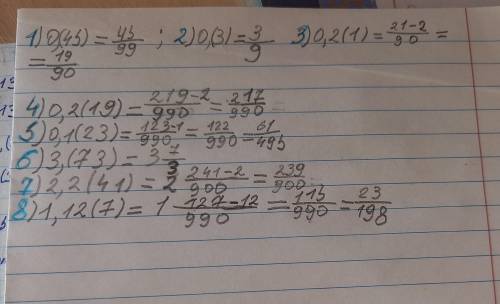 1) 0,(45) = 45/99 ; 2) 0,(3) = 3/9 3) 0,2(1) = 21-2/90 =
= 19/90
4) 0,2(19) = 219-2/990 = 217/990
5) 0,1(23) = 123-1/990 = 122/990 = 61/495
6) 3,(73) = 3 7/3
7) 2,2(41) = 2 241-2/900 = 239/900
8) 1,12(7) = 1 127-12/990 = 115/990 = 23/198